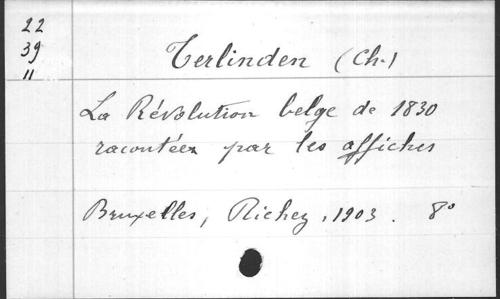 22
39
11
Terlinden (Ch.)
La Révolution belge de 1830
racontée par les affiches
Bruxelles, Richez, 1903. 8°